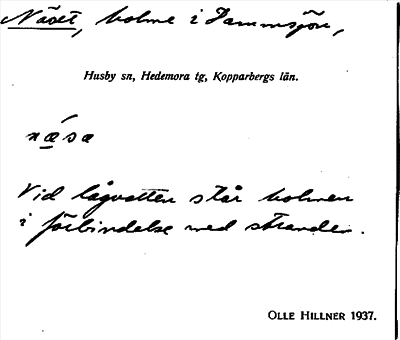 Näset, holme i Dammsjön,
Husby sn, Hedemora tg, Kopparbergs län.
næ´sa
Vid lågvatten står holmen
i förbindelse med stranden.
OLLE HILLNER 1937.